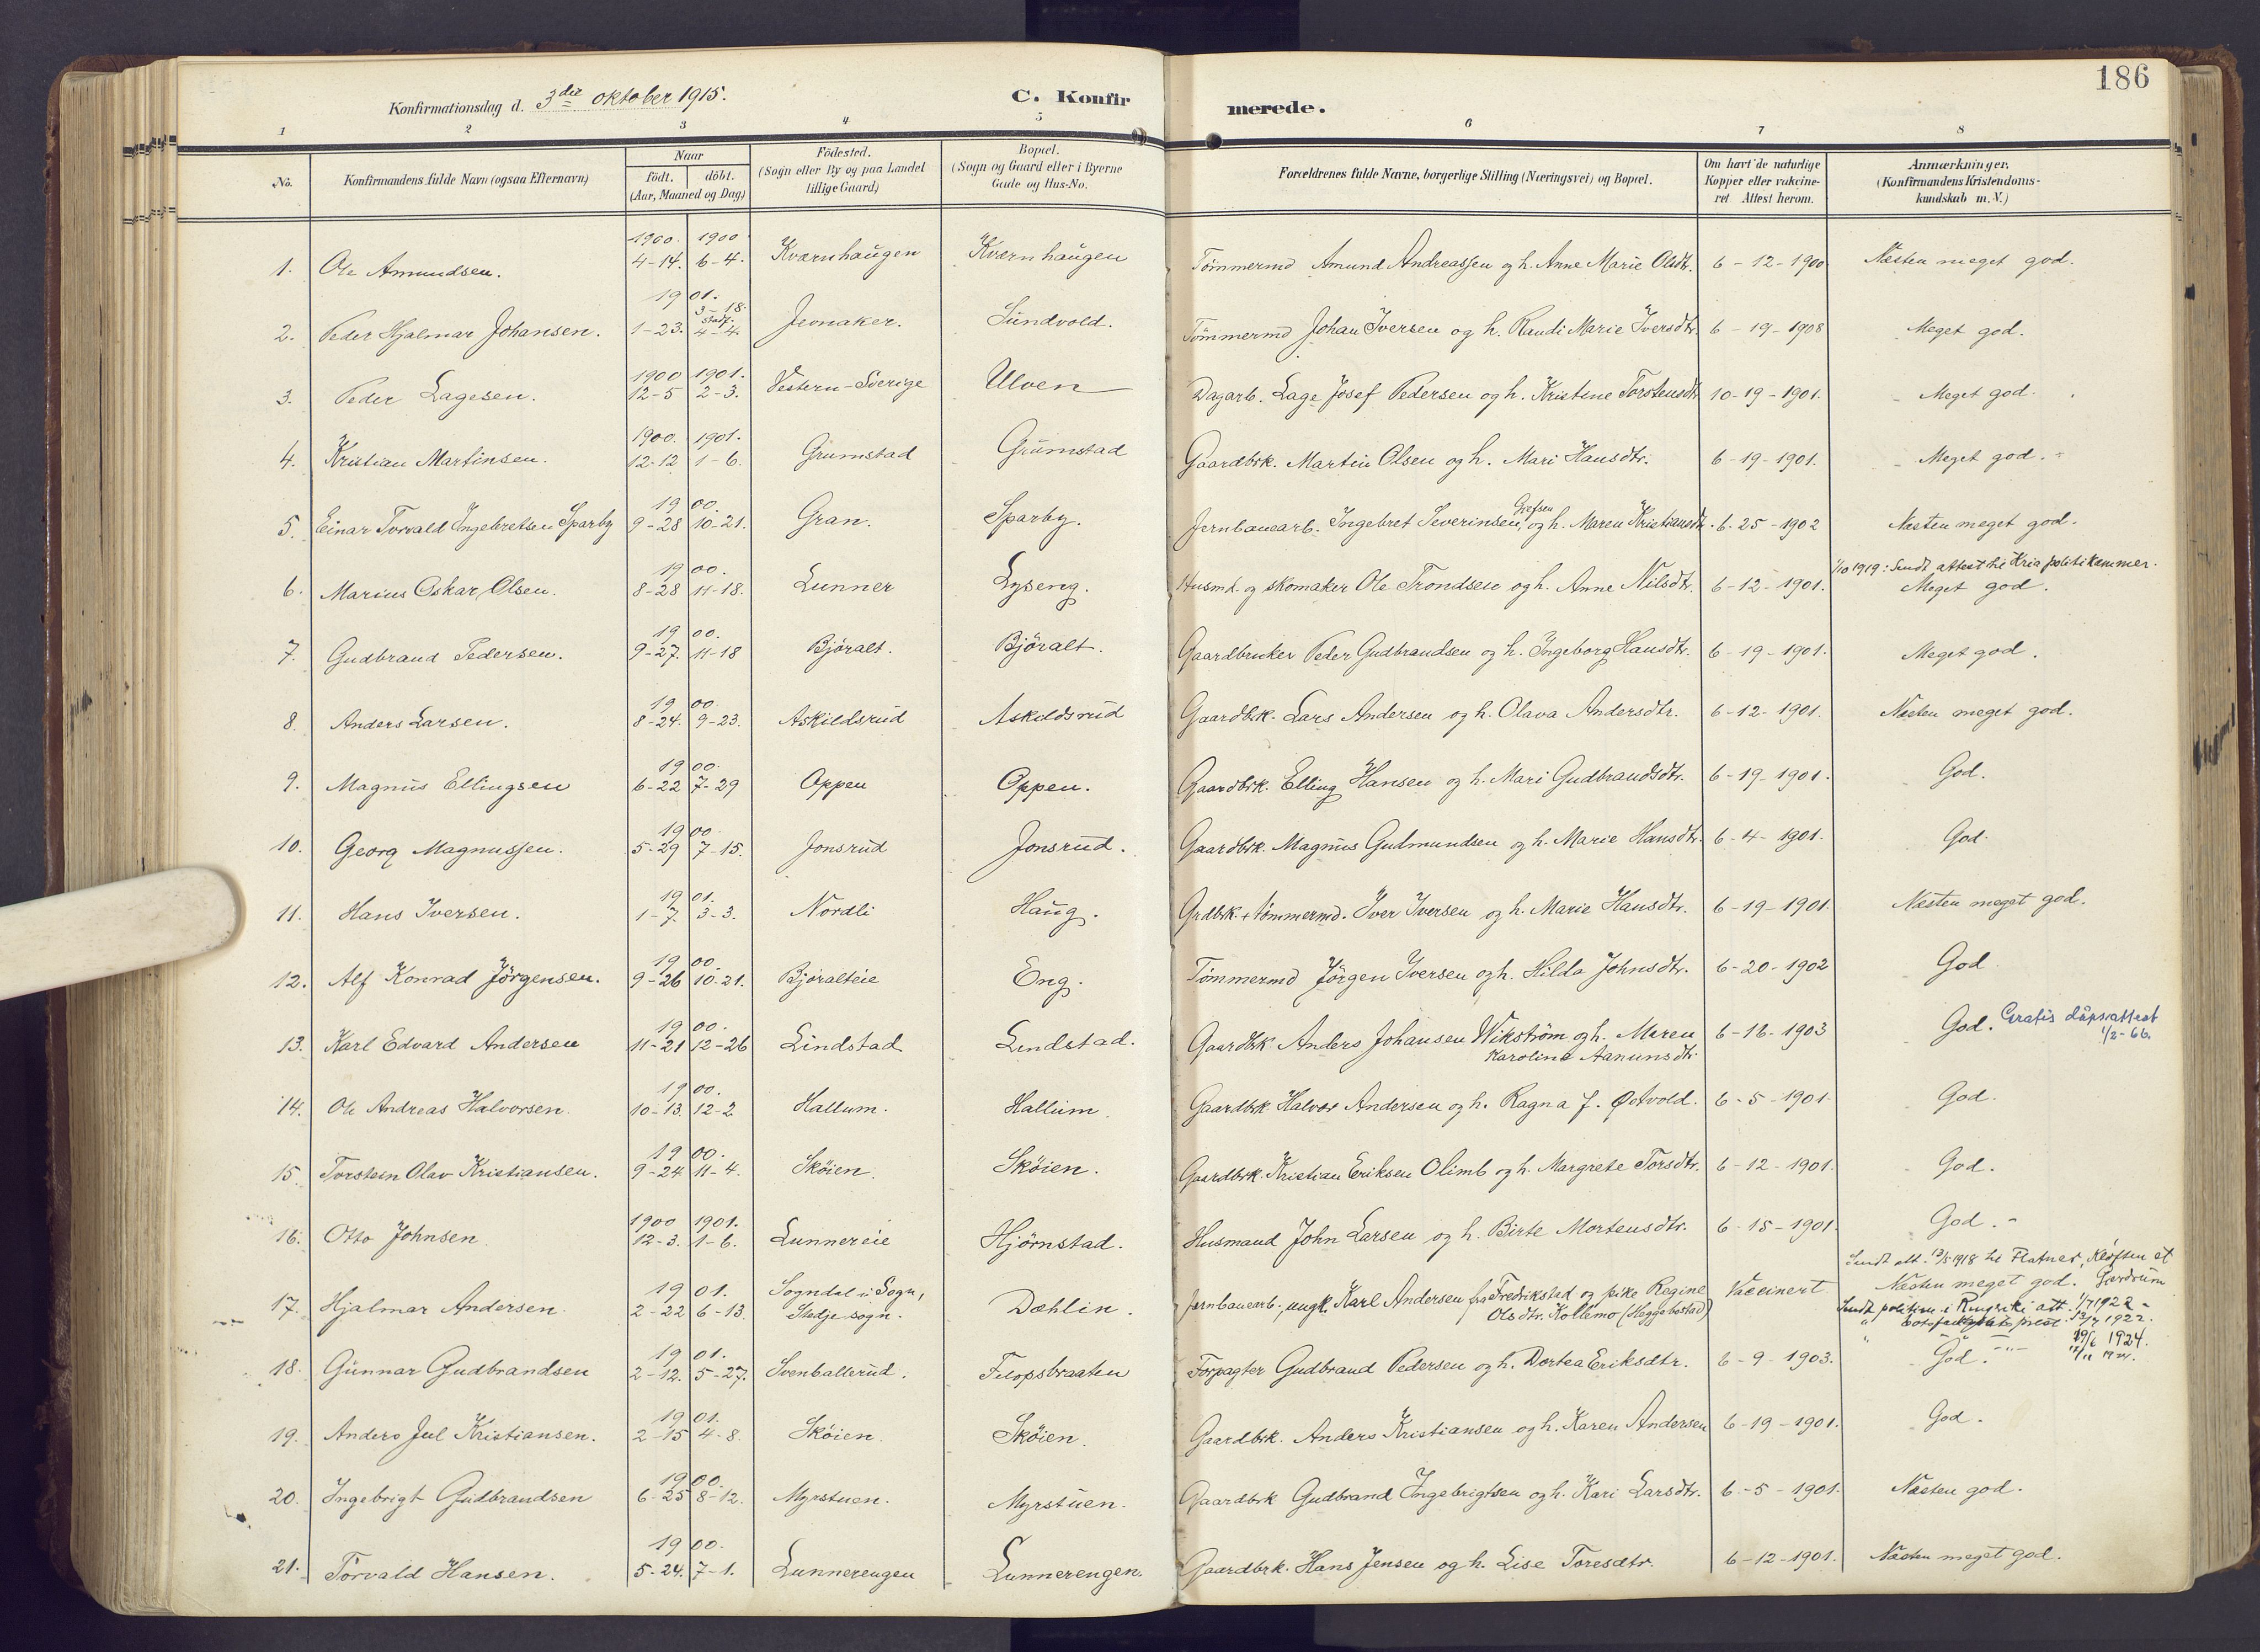 186
Konfirmationsdag d. 3die oktober 1915. C. Konfirmerede.
1 2 3 4 5 6 7 8
No. Konfirmandens fulde Navn (ogsaa Efternavn) Naar födt. döbt. (Aar, Maaned og Dag) Födested. (Sogn eller By og paa Landet tillige Gaard) Bopæl. (Sogn og Gaard eller i Byerne Gade og Hus-No. Forældrenes fulde Navne, borgerlige Stilling (Næringsvei) og Bopæl. Om havt de naturlige Kopper eller vakcineret Attest herom. Anmærkninger. (Konfirmandens Kristendomskundskab m.V.)
1. Ole Amundsen. 1900. 4-14. 1900 6-4. Kværnhaugen Kværnhaugen Tömmermd Amund Andreassen og h. Anne Marie Olsdtr. 6-12-1900 Næsten meget god.
2. Peder Hjalmar Johansen. 1901. 1-23. 3-18. stadf. 4-4. Jevnaker. Sundvold. Tömmermd Johan Iversen og h. Randi Marie Iversdtr. 6-19-1908 Meget god.
3. Peder Lagesen. 1900 12-5 1901. 2-3. Vestern-Sverige Ulven Dagarb. Lage Josef Pedersen og h. Kristine Torstensdtr 10-19-1901. Meget god.
4. Kristian Martinsen. 1900. 12-12 1901. 1-6. Grumstad Grumstad Gaardbrk. Martin Olsen og h. Mari Hansdtr. 6-19-1901. Meget god.
5. Einar Torvald Ingebretsen Sparby 1900. 9-28 10-21. Gran. Sparby. Jernbanearb. Ingebret Severinsen Grefsen og h. Maren Kristiansdtr. 6-25-1902 Næsten meget god.
6. Marius Oskar Olsen. 1900. 8-28 11-18. Lunner Lyseng. Husmd. og skomaker Ole Trondsen og h. Anne Nilsdtr. 6-12-1901. 1/10 1919: Sendt attest til Kria politikammer. Meget god.
7. Gudbrand Pedersen. 1900. 9-27. 11-18 Björalt. Björalt. Gaardbruker Peder Gudbrandsen og h. Ingeborg Hansdtr. 6-19-1901. Meget god.
8. Anders Larsen. 1900. 8-24. 9-23. Askildsrud Askildsrud Gaardbrk. Lars Andersen og h. Olava Andersdtr. 6-12-1901. Næsten meget god.
9. Magnus Ellingsen 1900. 6-22 7-29 Oppen Oppen. Gaardbrk. Elling Hansen og h. Mari Gudbrandsdtr. 6-19-1901. God.
10. Georg Magnussen. 1900 5-29 7-15. Jonsrud Jonsrud. Gaardbrk. Magnus Gudmundsen og h. Marie Hansdtr. 6-4-1901. God.
11. Hans Iversen. 1901. 1-7. 3-3. Nordli Haug. Grdbrk. + tömmermd. Iver Iversen og h. Marie Hansdtr. 6-19-1901. Næsten meget god.
12. Alf Konrad Jörgensen. 1900. 9-26 10-21. Björalteie Eng. Tömmermd Jörgen Iversen og h. Hilda Johnsdtr. 6-20-1902 God
13. Karl Edvard Andersen 1900. 11-21 12-26 Lindstad Lindstad. Gaardbk Anders Johansen Wikström og h. Maren Karoline Aanunsdtr. 6-16-1903 God. Gratis dåpsattest 1/2-66.
14. Ole Andreas Halvorsen. 1900. 10-13. 12-2 Hallum. Hallum. Gaardbrk. Halvor Andersen og h. Ragna J. Østvold. 6-5-1901. God.
15. Torstein Olav Kristiansen. 1900. 9-24 11-4. Sköien. Sköien. Gaardbrk. Kristian Eriksen Olimb og h. Margrete Torsdtr. 6-12-1901. God.
16. Otto Johnsen 1900 12-3. 1901. 1-6. Lunnereie Hjörnstad. Husmand John Larsen og h. Birte Mortensdtr. 6-15-1901. God.
17. Hjalmar Andersen. 1901. 2-22 6-13. Sogndal i Sogn, Stedje sogn. Dæhlin. Jernbanearb., ungk. Karl Andersen fra Fredrikstad og pike Regine Olsdtr. Kollemo (Heggebostad) Vaccinert Sendt att. 13/5 1918 til Flatner, Kløften st Gjerdrum
Næsten meget god.
Sendt politiet i Ringerike att. 1/7 1922
prest 13/7 1922.
19/6 1924.
18. Gunnar Gudbrandsen 1901. 2-12. 5-27. Svenballerud. Filopsbraaten Forpagter Gudbrand Pedersen og h. Dortea Eriksdtr. 6-9-1903. God.
19. Anders Jul Kristiansen. 1901. 2-15 4-8. Sköien. Sköien. Gaardbrk. Anders Kristiansen og h. Karen Andersen 6-19-1901. God.
20. Ingebrigt Gudbrandsen 1900. 6-25 8-12. Myrstuen. Myrstuen. Gaardbrk Gudbrand Ingebrigtsen og h. Kari Larsdtr. 6-5-1901. Næsten god.
21. Torvald Hansen. 1900. 5-24. 7-1. Lunnerengen Lunnerengen. Gaardbrk. Hans Jensen og h. Lise Toresdtr. 6-12-1901. Næsten meget god.